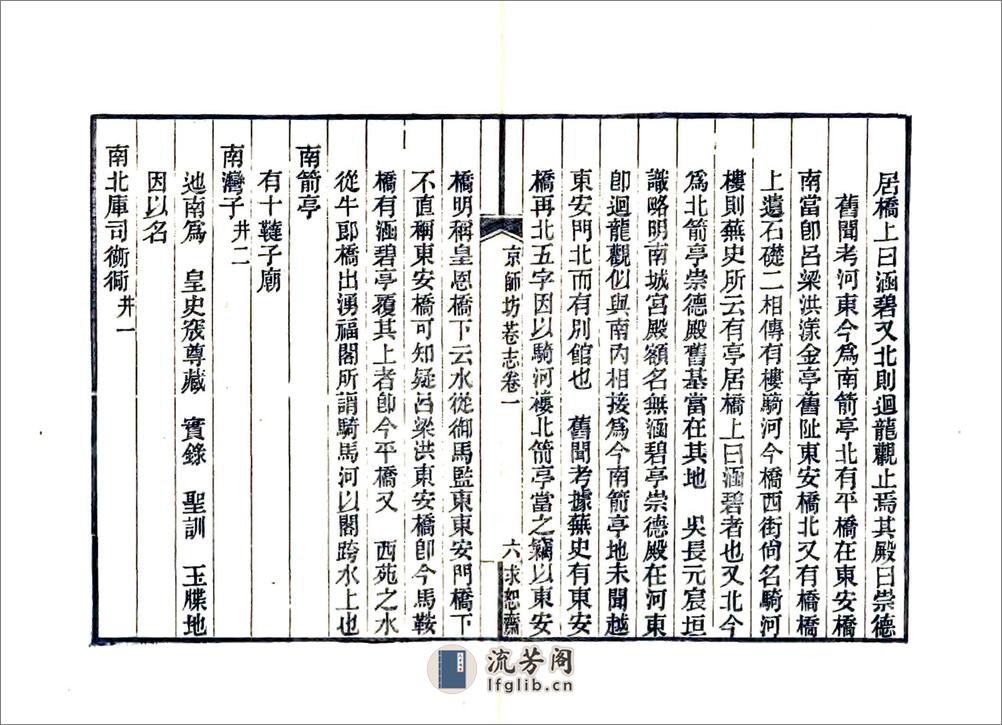 居橋上曰涵碧又北則迴龍觀止焉其殿曰崇德
舊聞考河東今爲南箭亭北有平橋在東安橋
南當卽呂梁洪漾金亭舊阯東安橋北又有橋橋
上遺石礎二相傳有樓騎河今橋西街尙名騎河
樓則蕪史所云有亭居橋上曰涵碧者也又北今
爲北箭亭崇德殿舊基當在其地　吳長元宸垣
識略明南城宮殿額名無涵碧亭崇德殿在河東
卽迴龍觀似與南內相接爲今南箭亭地未聞越
東安門北而有別館也　舊聞考據蕪史有東安
橋再北五字因以騎河樓北箭亭當之竊以東安
京師坊巷志卷一
六
求恕齋
橋明稱皇恩橋下云水從御馬監東東安門橋下
不直稱東安橋可知疑呂梁洪東安橋卽今馬鞍
橋有涵碧亭覆其上者卽今平橋又　西苑之水
從牛郎橋出湧福閣所謂騎馬河以閣跨水上也
南箭亭
有十韃子廟
南灣子井二
迆南爲　皇史宬尊藏　實錄　聖訓　玉牒地
因以名
南北庫司衚衕井一
流芳阁
lfglib.cn